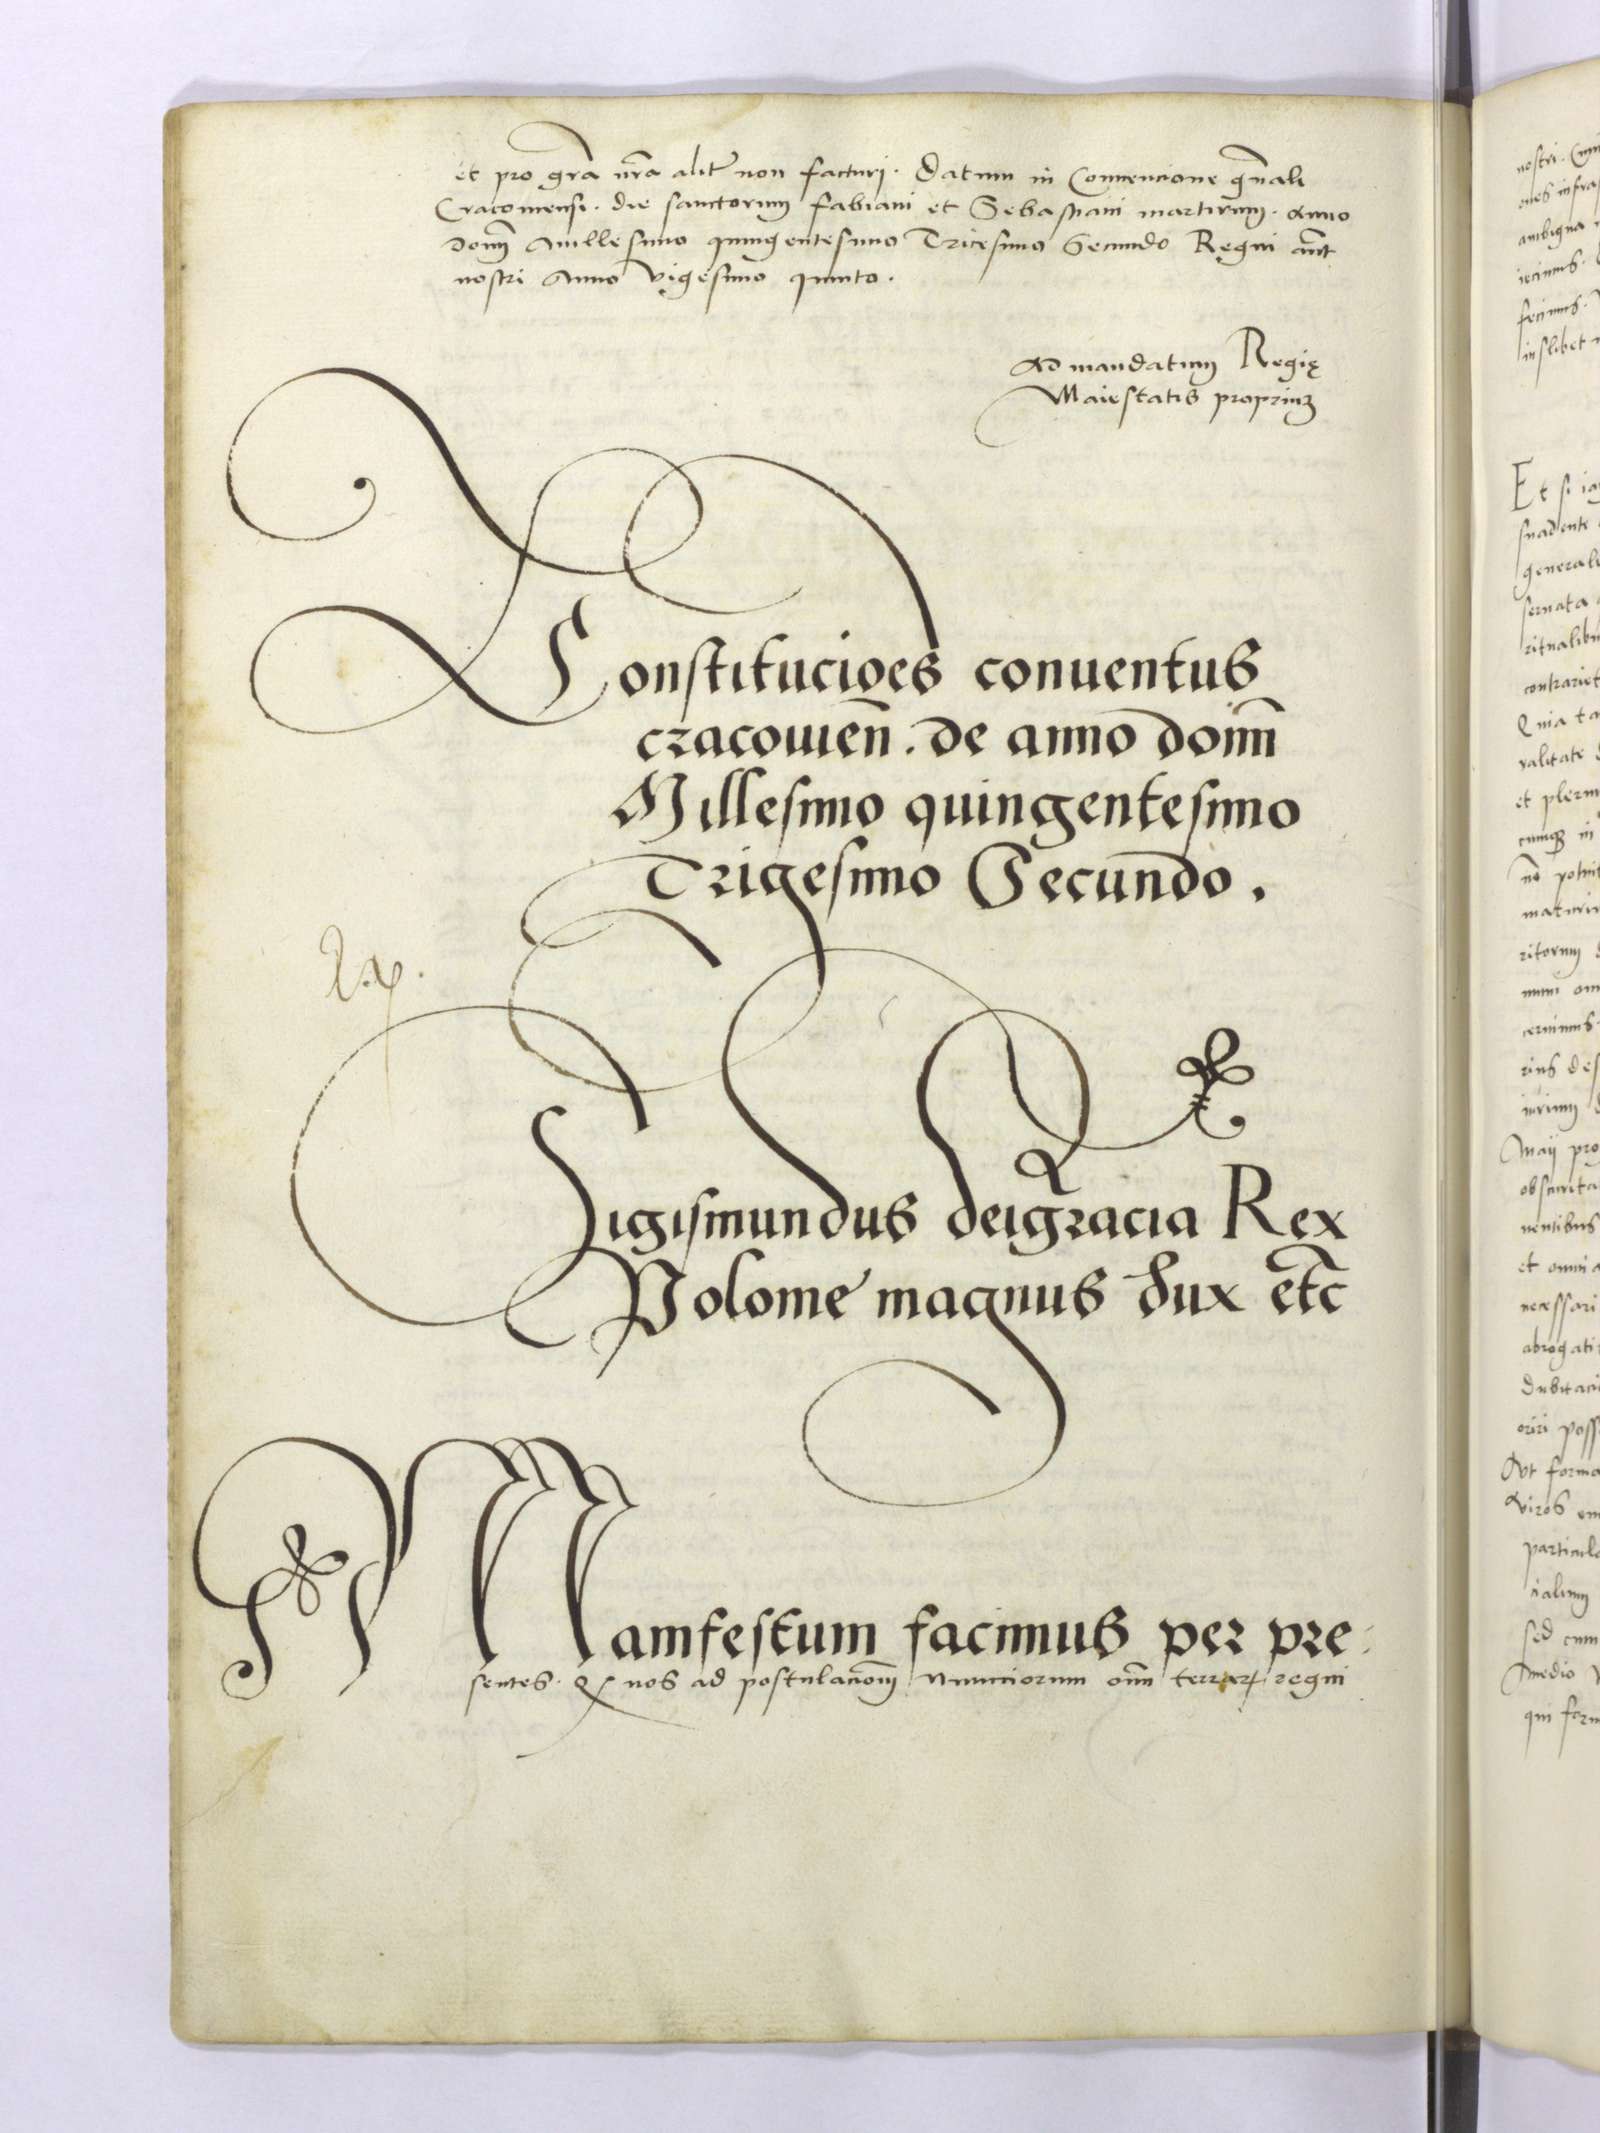 et pro gra nra alit non facturi. Datum in Conuencione gnali
Cracouiensi. die sanctorum Fabiani et Sebastiani martirum. Anno
domi Millesimo quingentesimo Tricesimo Secundo Regni aut
nostri Anno Vigesimo quinto.
Ad mandatum Regię
Maiestatis proprium
Constitucioes conuentus
cracouien. de anno domi
Millesimo quingentesimo
Trigesimo Secundo.
Sigismundus dei gracia Rex
Polonie magnus dux etc
Manifestum facimus per pre
sentes. nos ad postulacionem Nunciorum oim terrarum regni
nostri.
Et si
suadente
generali
seruata
contrariet
Quia ta
ualitate
et
maturi
ritorum
cernimus
rius des
Maij pro
obscurita
uentibus
et omnia
necessari
abrogati
dubitaci
oriri poss
Vt forma
Viros
particula
sed cum
medio
qui form